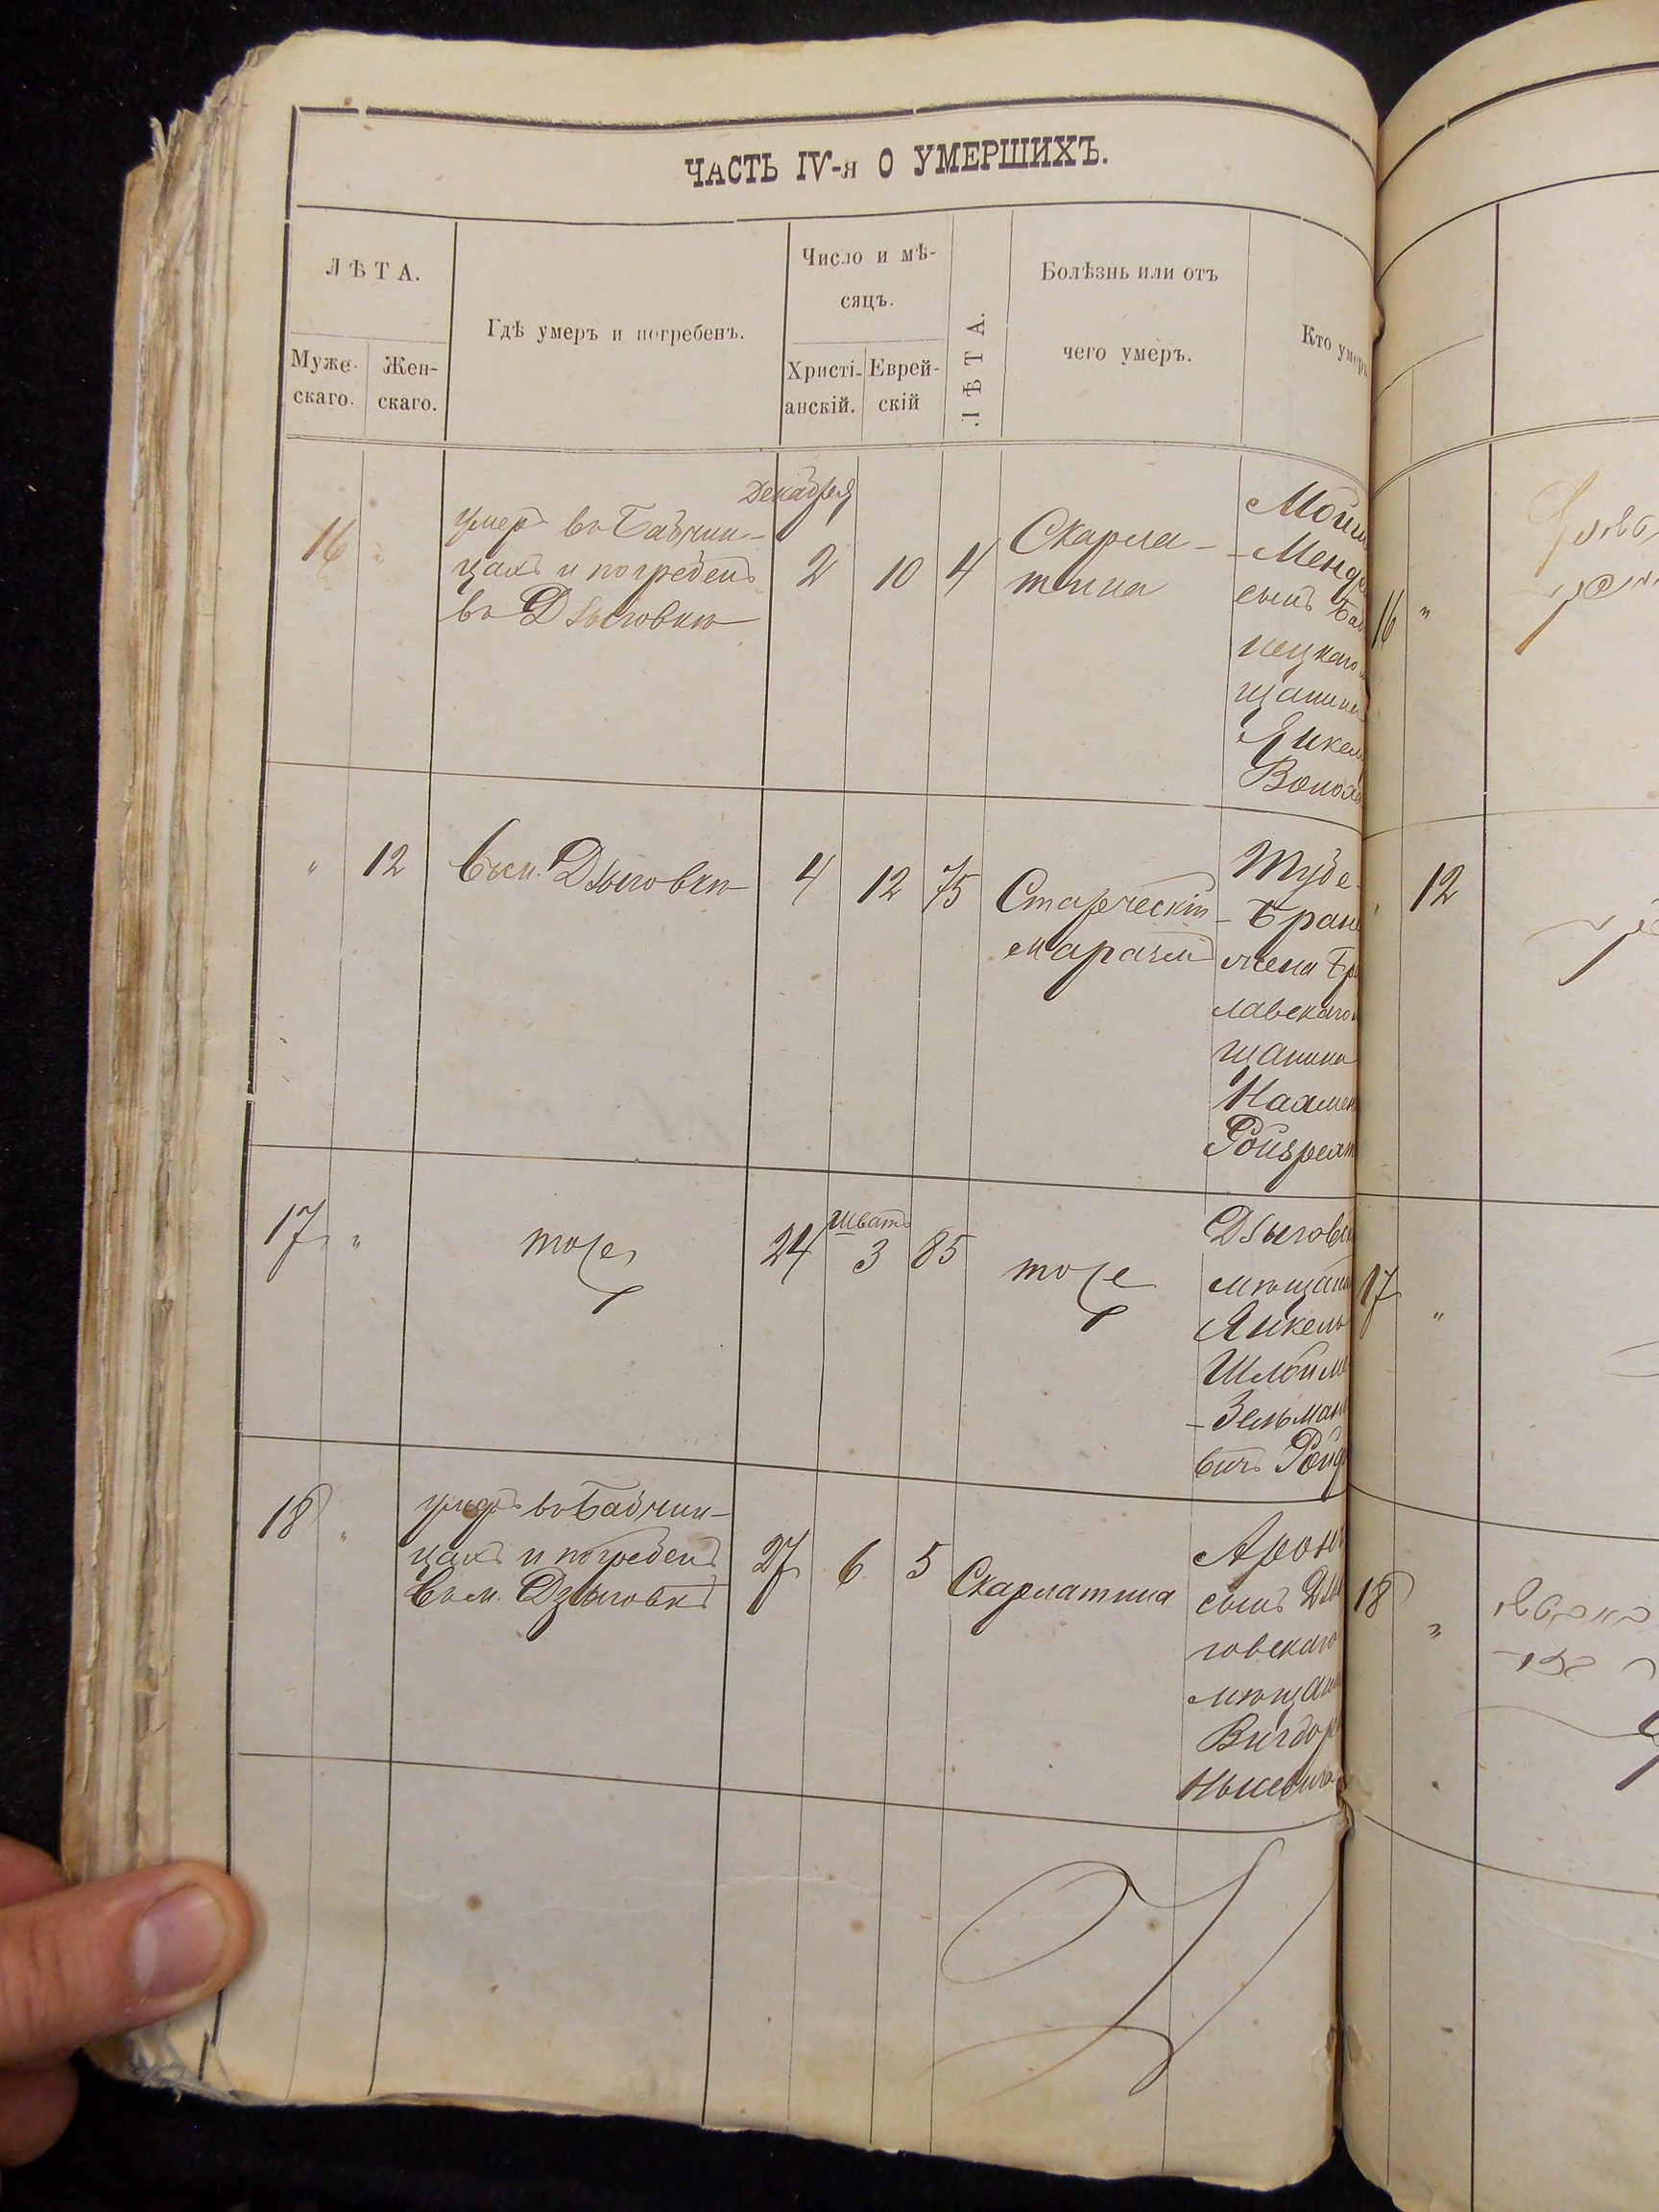 ЧАСТЬ IV-я О УМЕРШИХЪ.
ЛѢТА.
Муже-
скаго.
Жен-
скаго.
Гдѣ умеръ и погребенъ.
Число и мѣ-
сяцъ.
Христі-
анскій.
Еврей-
скій
ЛѢТА.
Болѣзнь или отъ
чего умеръ.
Кто умеръ
16 "
умеръ въ Бабчин-
цахъ и погребенъ
въ Дзыговкѣ
Декабря
2 10 4
Скарла-
тина
Мош
-Менд
сынъ Баб
нецкаго
щанина
Янкел
Волох
16 "
" 12
въ м. Дзыговкѣ
4 12 75
Старческій
маразмъ
Тубе-
-Бран
жена Бра
лавскаго
щанина
Нахмен
12
17 "
тоже
24
Шватъ
3 85
тоже
Дзыговск
мѣщани
Янкель
Шлойме
-Зельман
вичъ Ройз
17 "
18 "
умеръ въ Бабчин-
цахъ и погребенъ
въ м. Дзыговкѣ
27 6 5
Скарлатина
Аронъ
сынъ Дзы
говскаго
мѣщани
Вигдор
18 "